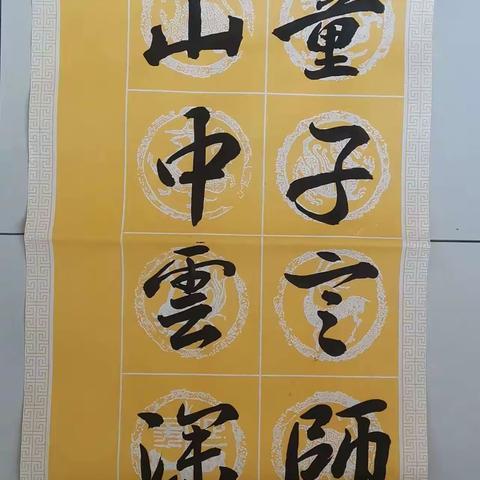 童子言師
山中雲深